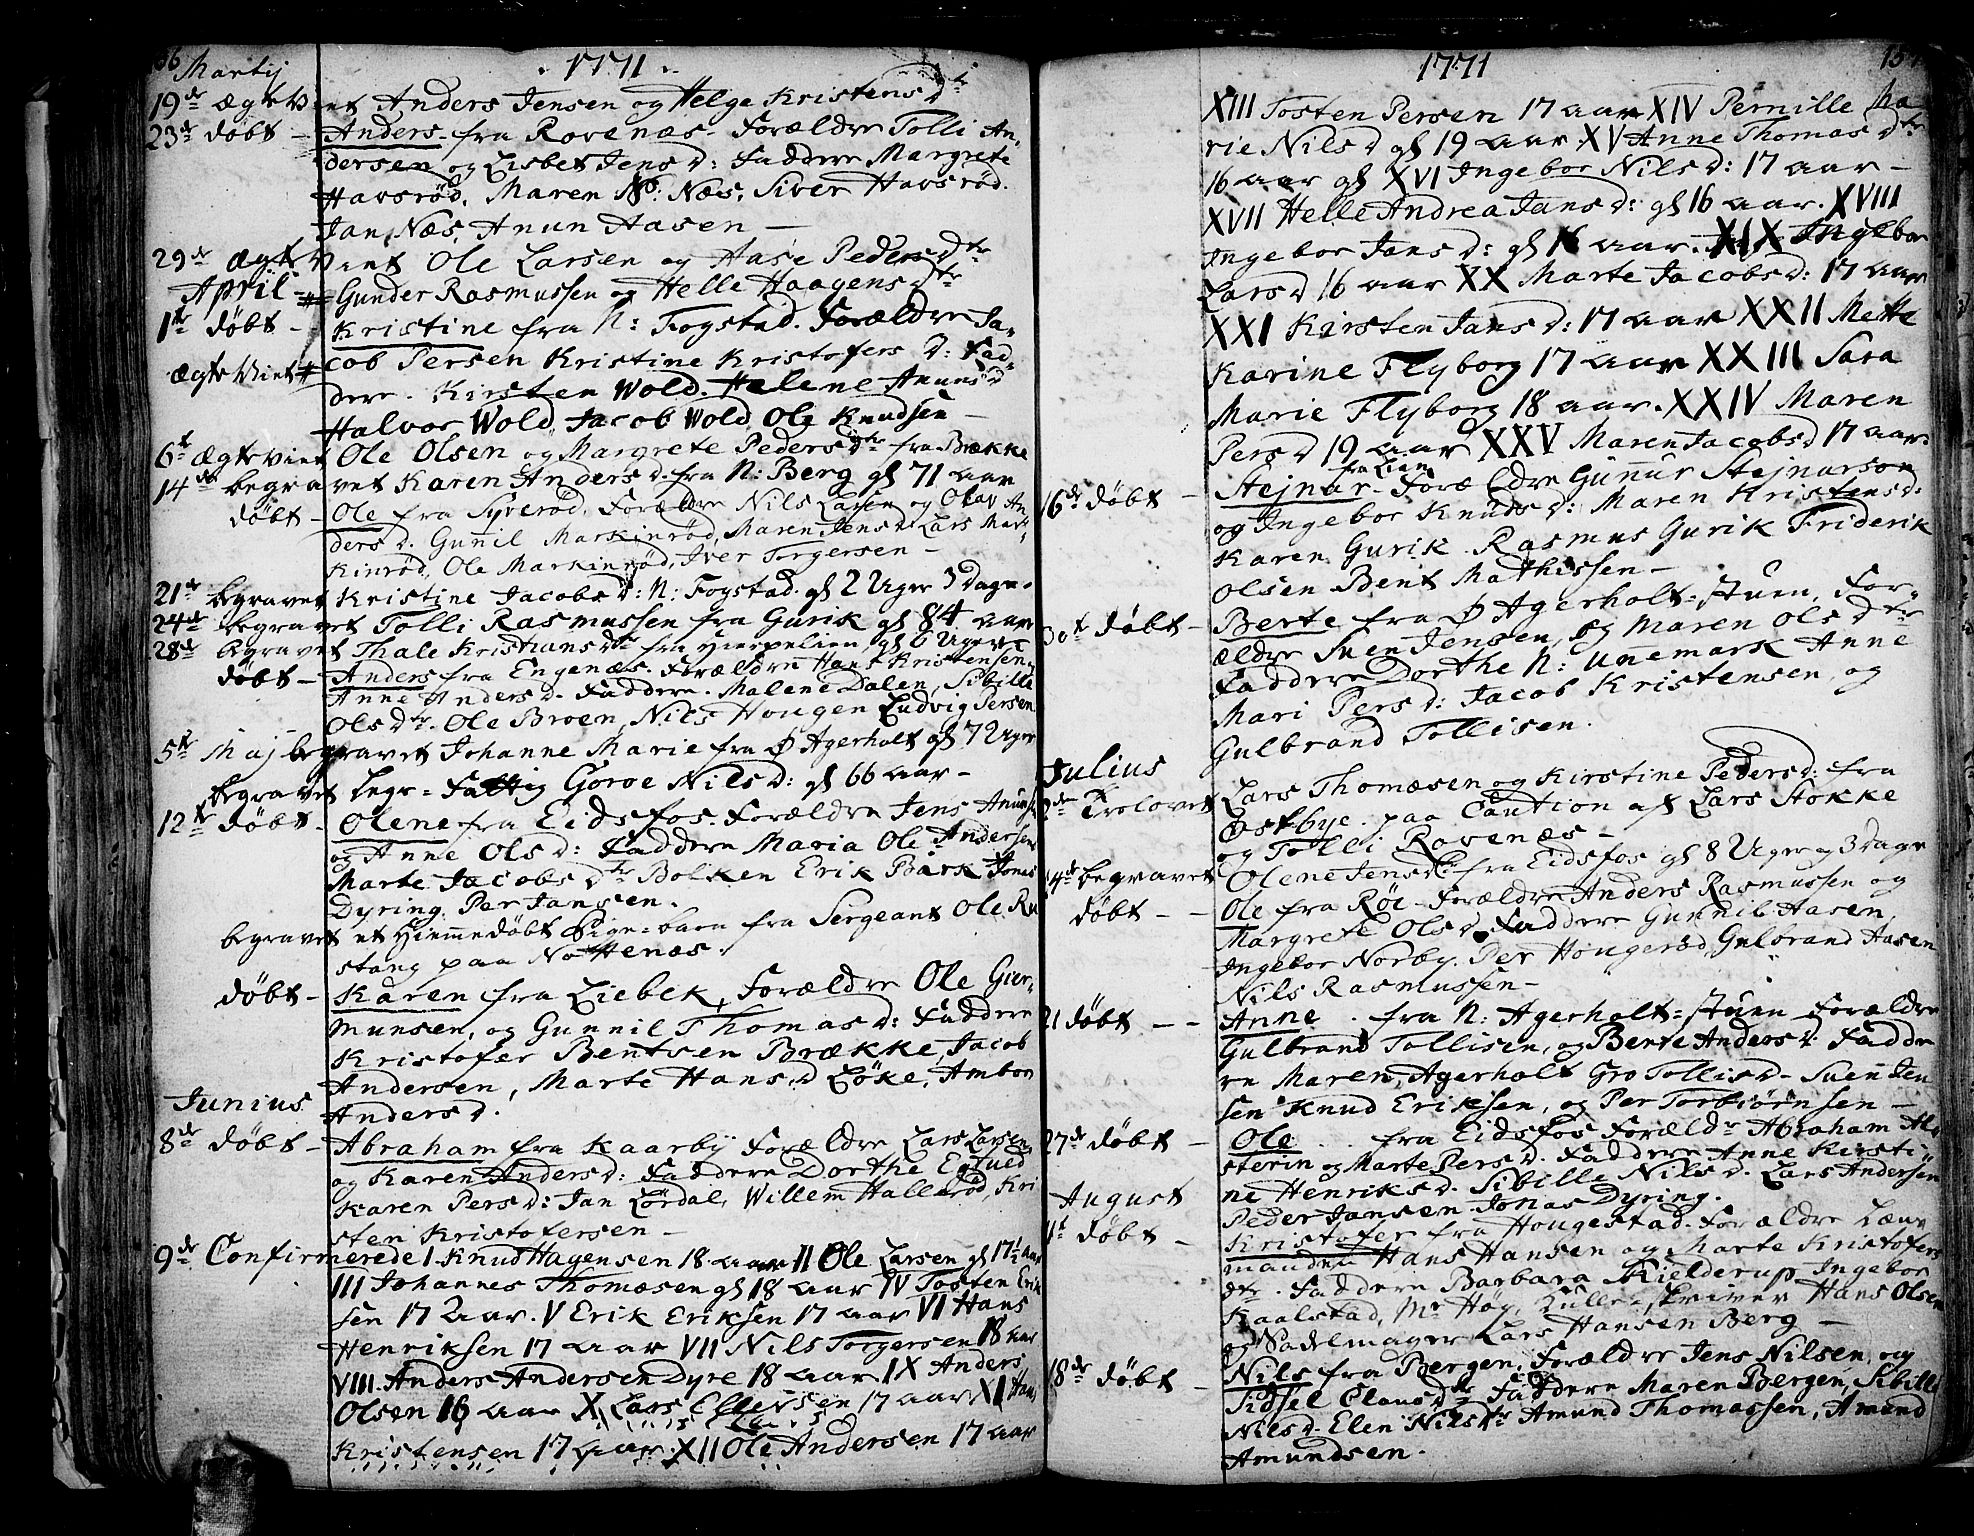 Martij 1771
19de ægteViet Anders Jensen og Helge Kristensdtr
23de døbt – Anders fra Rovenæs. Forældre Tolli An-
dersen og Lisbet Jensd: Faddere Margrete
Havsrød, Maren Næs, Siver Havsrød.
Jan Næs, Anun Aasen –
29de ægteViet Ole Larsen og Aase PedersDtr
April – # Gunder Rasmussen og Helle HaagensDtr
1te døbt – Kristine fra N: Fogstad. Forældre Ja-
ægteViet # cob Persen Kristine Kristofers D: Fad-
dere. Kirsten Wold. Helene Anunsd
Halvor Wold Jacob Wold, Ole Knudsen –
6te ægteviet Ole Olsen og Margrete PedersDtr fra Brække
14de begravet Karen Andersd. fra N: Berg gl 71 aar
døbt – Ole fra Syverød, Forældre Nils Larsen og Olav An-
ders d. Gunil Markinrød, Maren Jensd. Lars Mar-
kinrød, Ole Markinrød, Iver Torgersen –
21de begravet Kristine Jacobsd: N: Fogstad. gl 2 Uger 3 Dage.
24de begravet Tolli Rasmussen fra Gurik gl 84 aar
28de begravet Thale KristiansDtr fra Hierpelien gl 6 Uger
døbt – Anders fra Engenæs. Forældre Hans Kristensen
Anne Anders d. Faddere. Malene Dalen, Sibille
OlsDtr. Ole Broen, Nils Hougen Ludvig Persen
5te Maj begravet Johanne Marie fra Ø Agerholt gl 7 Uger
begravet Legs- Fattig Goroe Nilsd: gl 66 aar –
12te døbt – Olene fra Eidsfos. Forældre Jens Anuns
og Anne Olsd: Faddere Maria Ole Andersen
Marte JacobsDtr Bolken Erik Bark Jonas
Dyring, Per Jansen.
begravet et Hiemmedøbt Pige-barn fra Sergeant Ole Ru
stang paa Nottenæs.
døbt – Karen fra Liebek, Forældre Ole Gier-
munsen, og Gunnil Thomasd: Faddere
Kristofer Bentsen Brække, Jacob
Andersen, Marte Hansd Løke, Ambor
Junius Andersd.
8de døbt – Abraham fra Kaarby Forældre Lars Larsen
og Karen Andersd: Faddere Dorthe Egtued
Karen Persd: Jan Lørdal, Willem Hallerød, Kri
sten Kristofersen –
9de Confirmerede I. Knud Hagensen 18 aar II Ole Larsen gl 17½ aar
III Johannes Thomæsen gl 18 aar IV Tosten Erik
sen 17 aar. V Erik Eriksen 17 aar VI Hans
Henriksen 17 aar VII Nils Torgersen 18 aar
VIII. Anders Andersen Dyre 18 aar IX Anders
Olsen 16 aar X Lars Ellevsen 17 aar XI Hans
Kristensen 17 aar. XII Ole Andersen 17 aar
1771
XIII Tosten Persen 17 aar XIV Pernille Ma
rie Nilsd gl 19 aar. XV Anne ThomasDtr
16 aar gl XVI Ingebor Nilsd: 17 aar –
XVII Helle Andrea Jansd: gl 16 aar. XVIII
Ingebor Jansd: gl 16 aar. XIX Ingebor
Larsd 16 aar XX Marte Jacobsd: 17 aar
XXI Kirsten Jansd: 17 aar XXII Mette
Karine Flyborg 17 aar XXIII Sara
Marie Flyborg 18 aar. XXIV Maren
Persd 19 aar XXV Maren Jacobsd 17 aar
fra Lien
16de døbt – Stejnar – Forældre Gunnur Stejnarson
og Ingebor Knudsd: Maren Kristensd:
Karen Gurik. Rasmus Gurik Friderik
Olsen Bent Mathissen –
30te døbt – Berte fra Ø Agerholt-stuen, For-
ældre Suen Jensen, og Maren OlsDtr
Faddere Dorthe N: Unnemark Anne
Mari Persd: Jacob Kristensen, og
Gulbrand Tollisen.
Julius
Trolovet Lars Thomæsen og Kirstine Pedersd: fra
Østbye. paa Caution af Lars Stokke
og Tolli Rovenæs –
14de begravet Olene Jensdtr fra Eidsfos gl 8 Uger og 3 Dage
døbt – – Ole fra Røe. Forældre Anders Rasmussen og
Margrete Olsd. Faddere Gunnil Aasen,
Ingebor Norby. Per Hougerød, Gulbrand Aasen
Nils Rasmussen –
21 døbt – – Anne . fra N: Agerholt-stuen Forældre
Gulbrand Tollisen, og Berte Andersd: Fadde
re Maren Agerholt Gro Tollisd – Suen Jen
sen Knud Eriksen, og Per Torbiørnsen –
27de døbt – Ole . . fra Eidsfos Foreldr Abraham Al-
sterin og Marte Persd. Faddere Anne Kirsti-
ne Henriksd. Sibille Nilsd. Lars Andersen
August Peder Jansen. Jonas Dyring.
døbt – Kristofer fra Hougestad. Forældre Læns
manden Hans Hansen og Marte Kristofers
dtr. Faddere Barbara Kielderup, Ingebor
Kaalstad, Mr Høg, Hulle-skriver Hans Olsen
og Sadelmager Lars Hansen Berg –
18de døbt – Nils fra Bergen. Forældre Jens Nilsen, og
Sidsel ClausDtr Faddere Maren Bergen, Sibille
Nilsd. Elen NilsDtr Amund Thomassen, Amund
Amundsen.